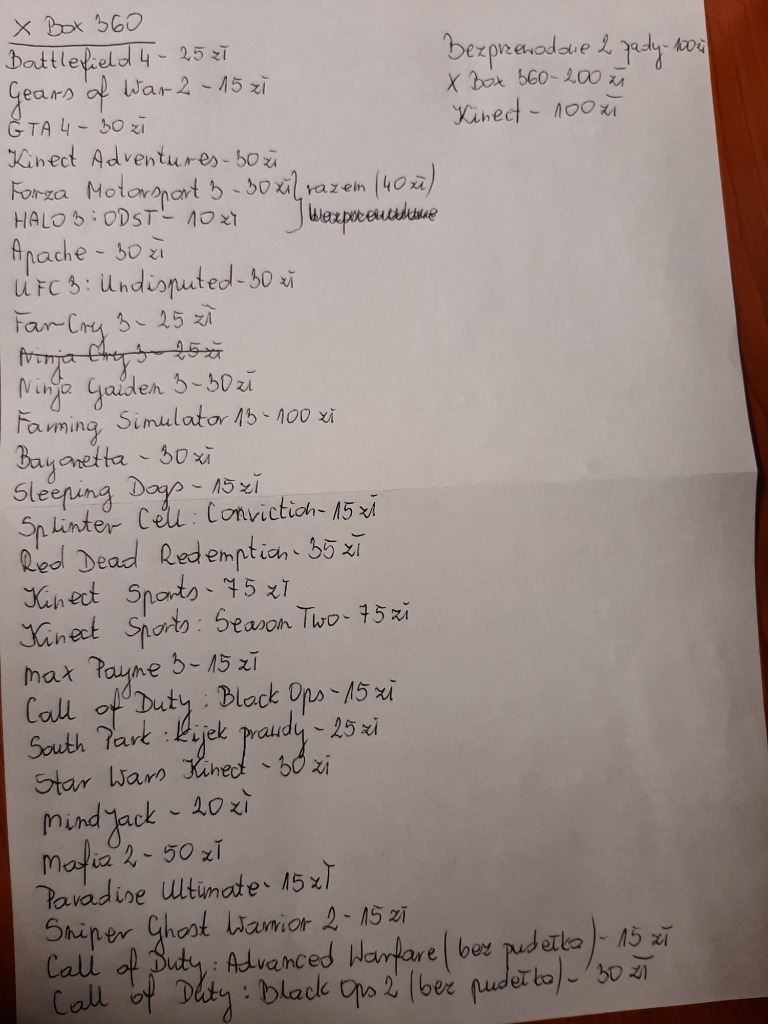 X Box 360
Battlefield 4 - 25 zł
Gears of War 2 - 15 zł
GTA 4 - 30 zł
Kinect Adventures - 30 zł
Forza Motorsport 3 - 30 zł } razem (40 zł)
HALO 3: ODST - 10 zł
Apache - 30 zł
UFC 3: Undisputed - 30 zł
Far Cry 3 - 25 zł
Ninja Cry 3 - 25 zł
Ninja Gaiden 3 - 30 zł
Farming Simulator 13 - 100 zł
Bayonetta - 30 zł
Sleeping Dogs - 15 zł
Splinter Cell: Conviction - 15 zł
Red Dead Redemption - 35 zł
Kinect Sports - 75 zł
Kinect Sports: Season Two - 75 zł
Max Payne 3 - 15 zł
Call of Duty: Black Ops - 15 zł
South Park: Kijek prawdy - 25 zł
Star Wars Kinect - 30 zł
MindJack - 20 zł
Mafia 2 - 50 zł
Paradise Ultimate - 15 zł
Sniper Ghost Warrior 2 - 15 zł
Call of Duty: Advanced Warfare (bez pudełka) - 15 zł
Call of Duty: Black Ops 2 (bez pudełka) - 30 zł
Bezprzewodowe 2 pady - 100 zł
X Box 360 - 200 zł
Kinect - 100 zł